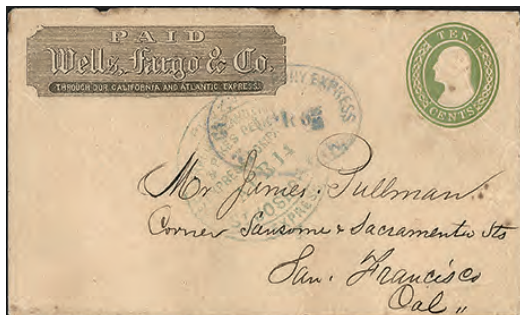 PAID
Wells, Fargo & Co.
THROUGH OUR CALIFORNIA AND ATLANTIC EXPRESS.
TEN
CENTS
EXPRESS
Mr James Pullman
Corner Sansome & Sacramento Sts
San. Francisco
Cal "